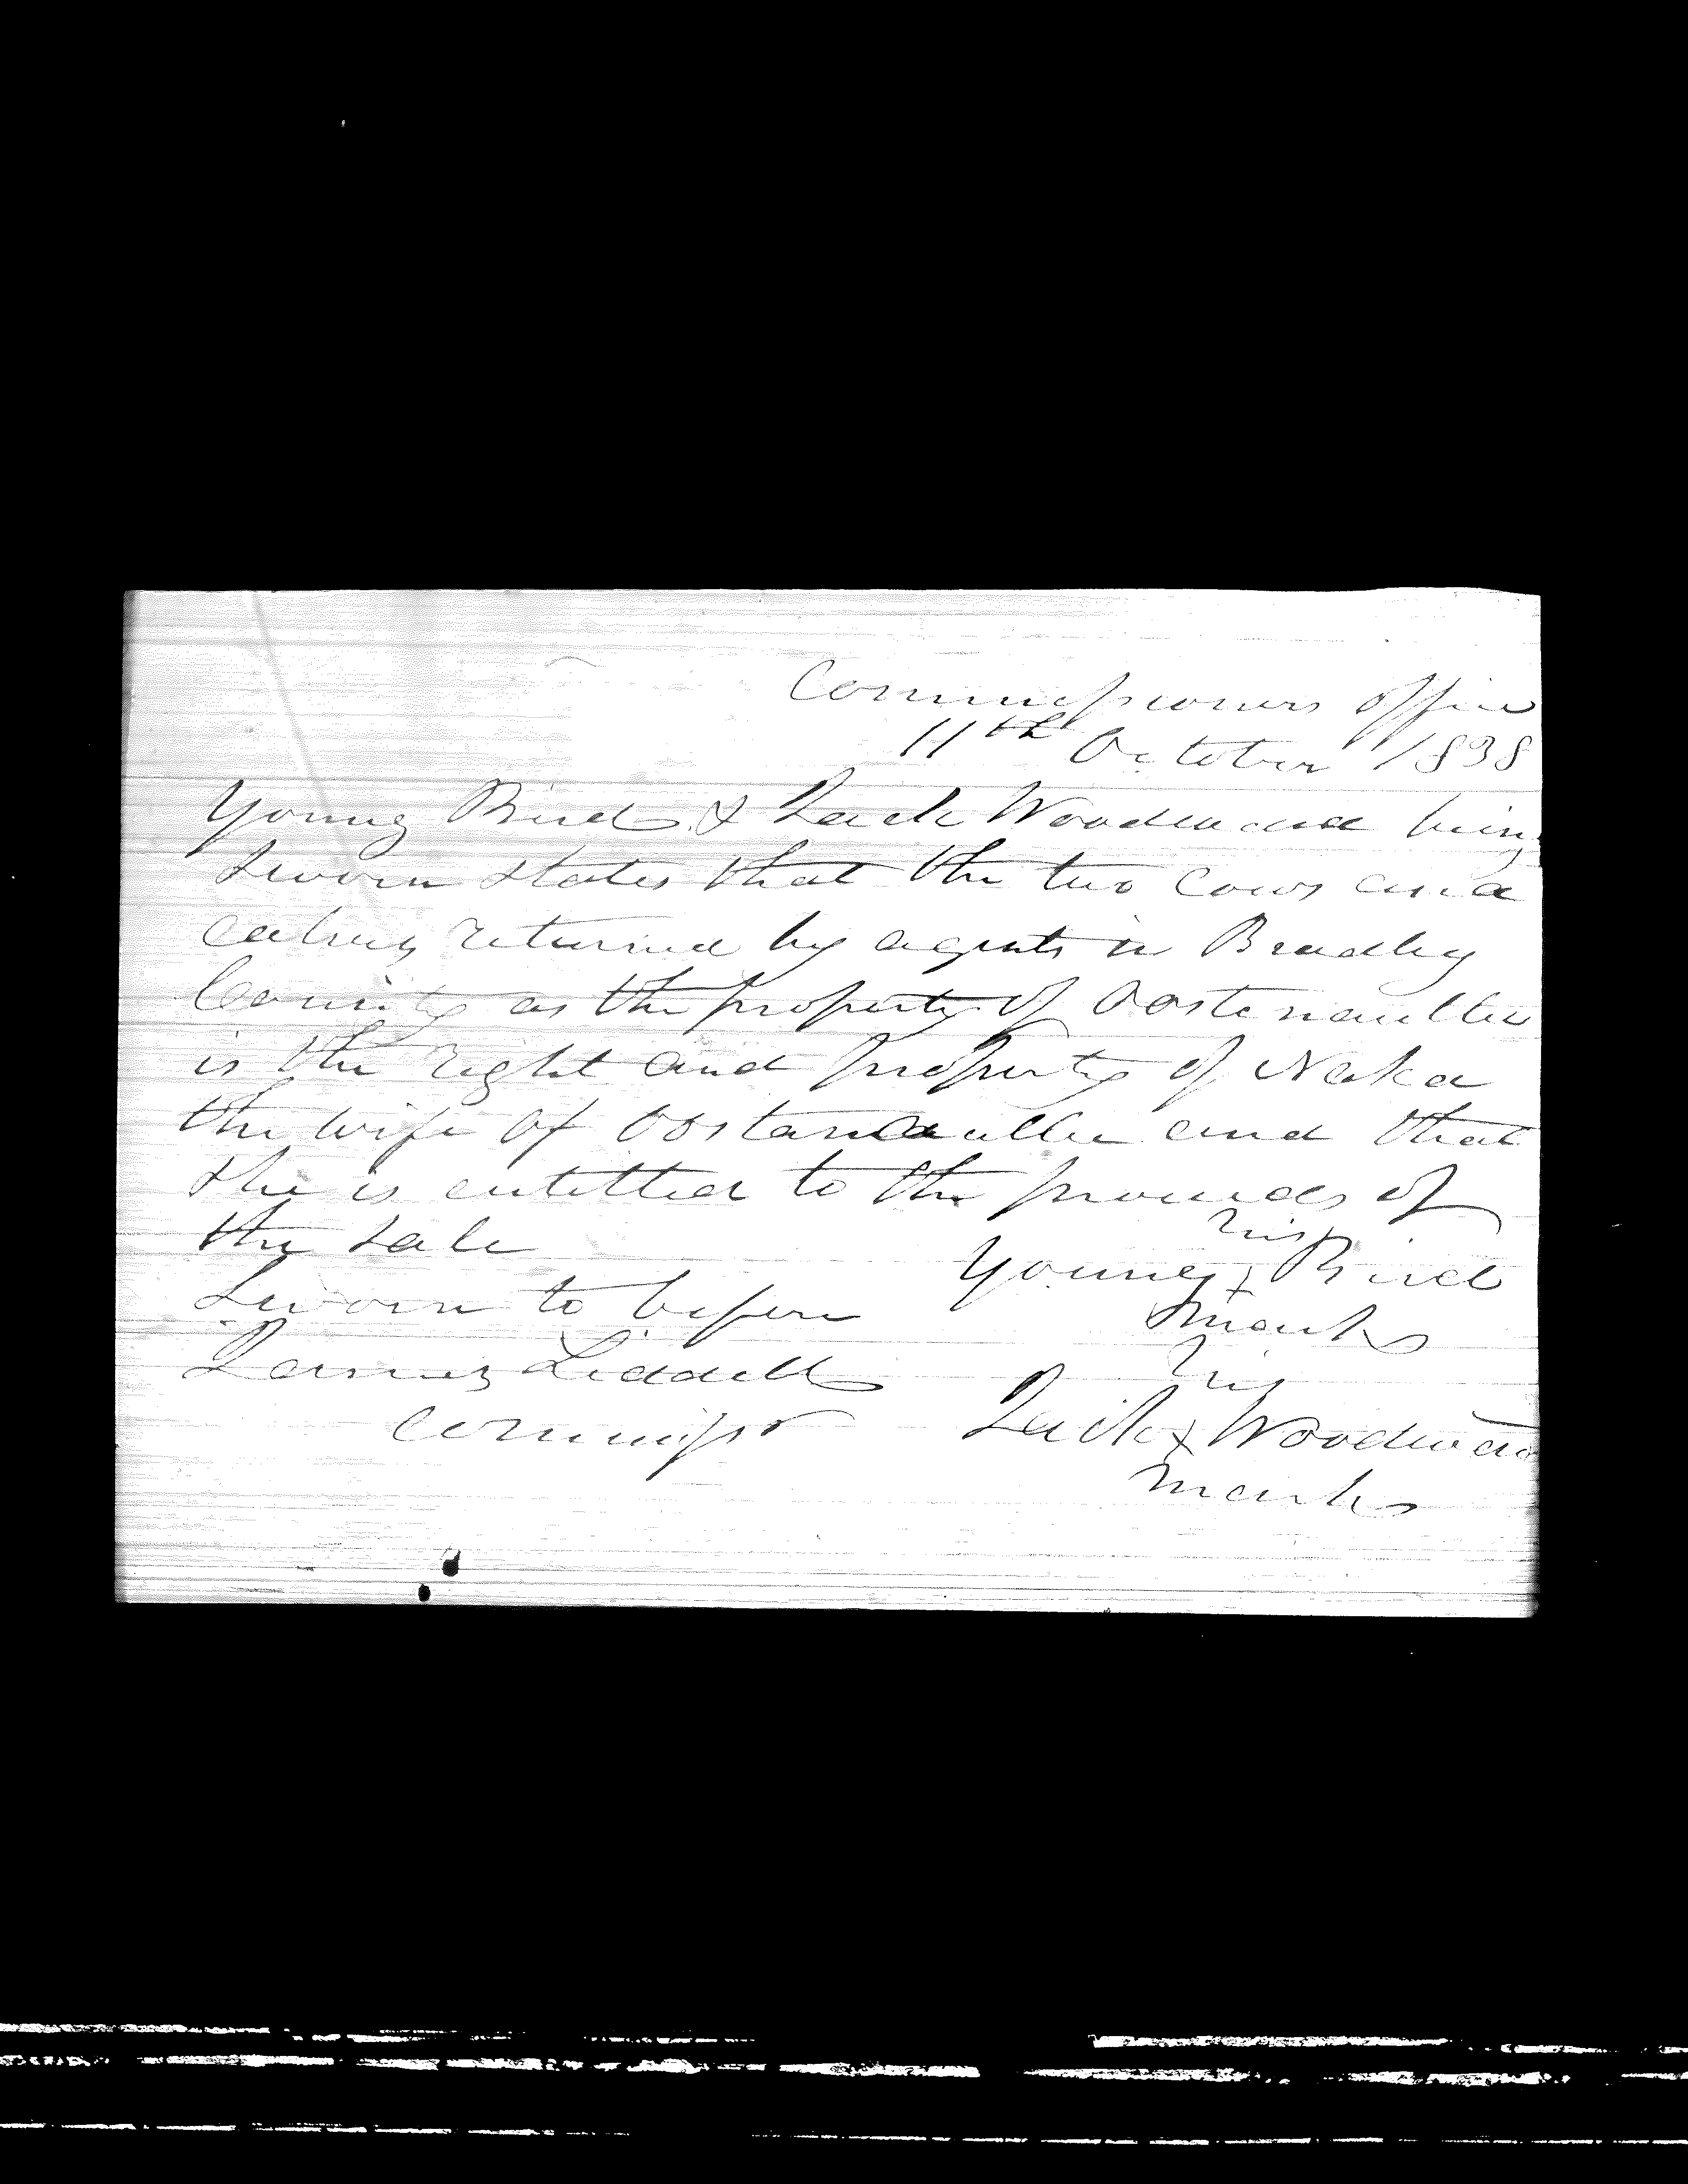 Commissioners office
11th October 1838
Young Bird & Jack Woodward being
Sworn States that the two Cows and
calves returned by agents in Bradley
County as the property of Oostenaullee
is the right and property of Naka
the wife of Oostanaullee and that
she is entitled to the proceeds of
the Sale
his
Young x Bird
Sworn to before
mark
James Liddell
his
Commissr
Jack x Woodward
mark